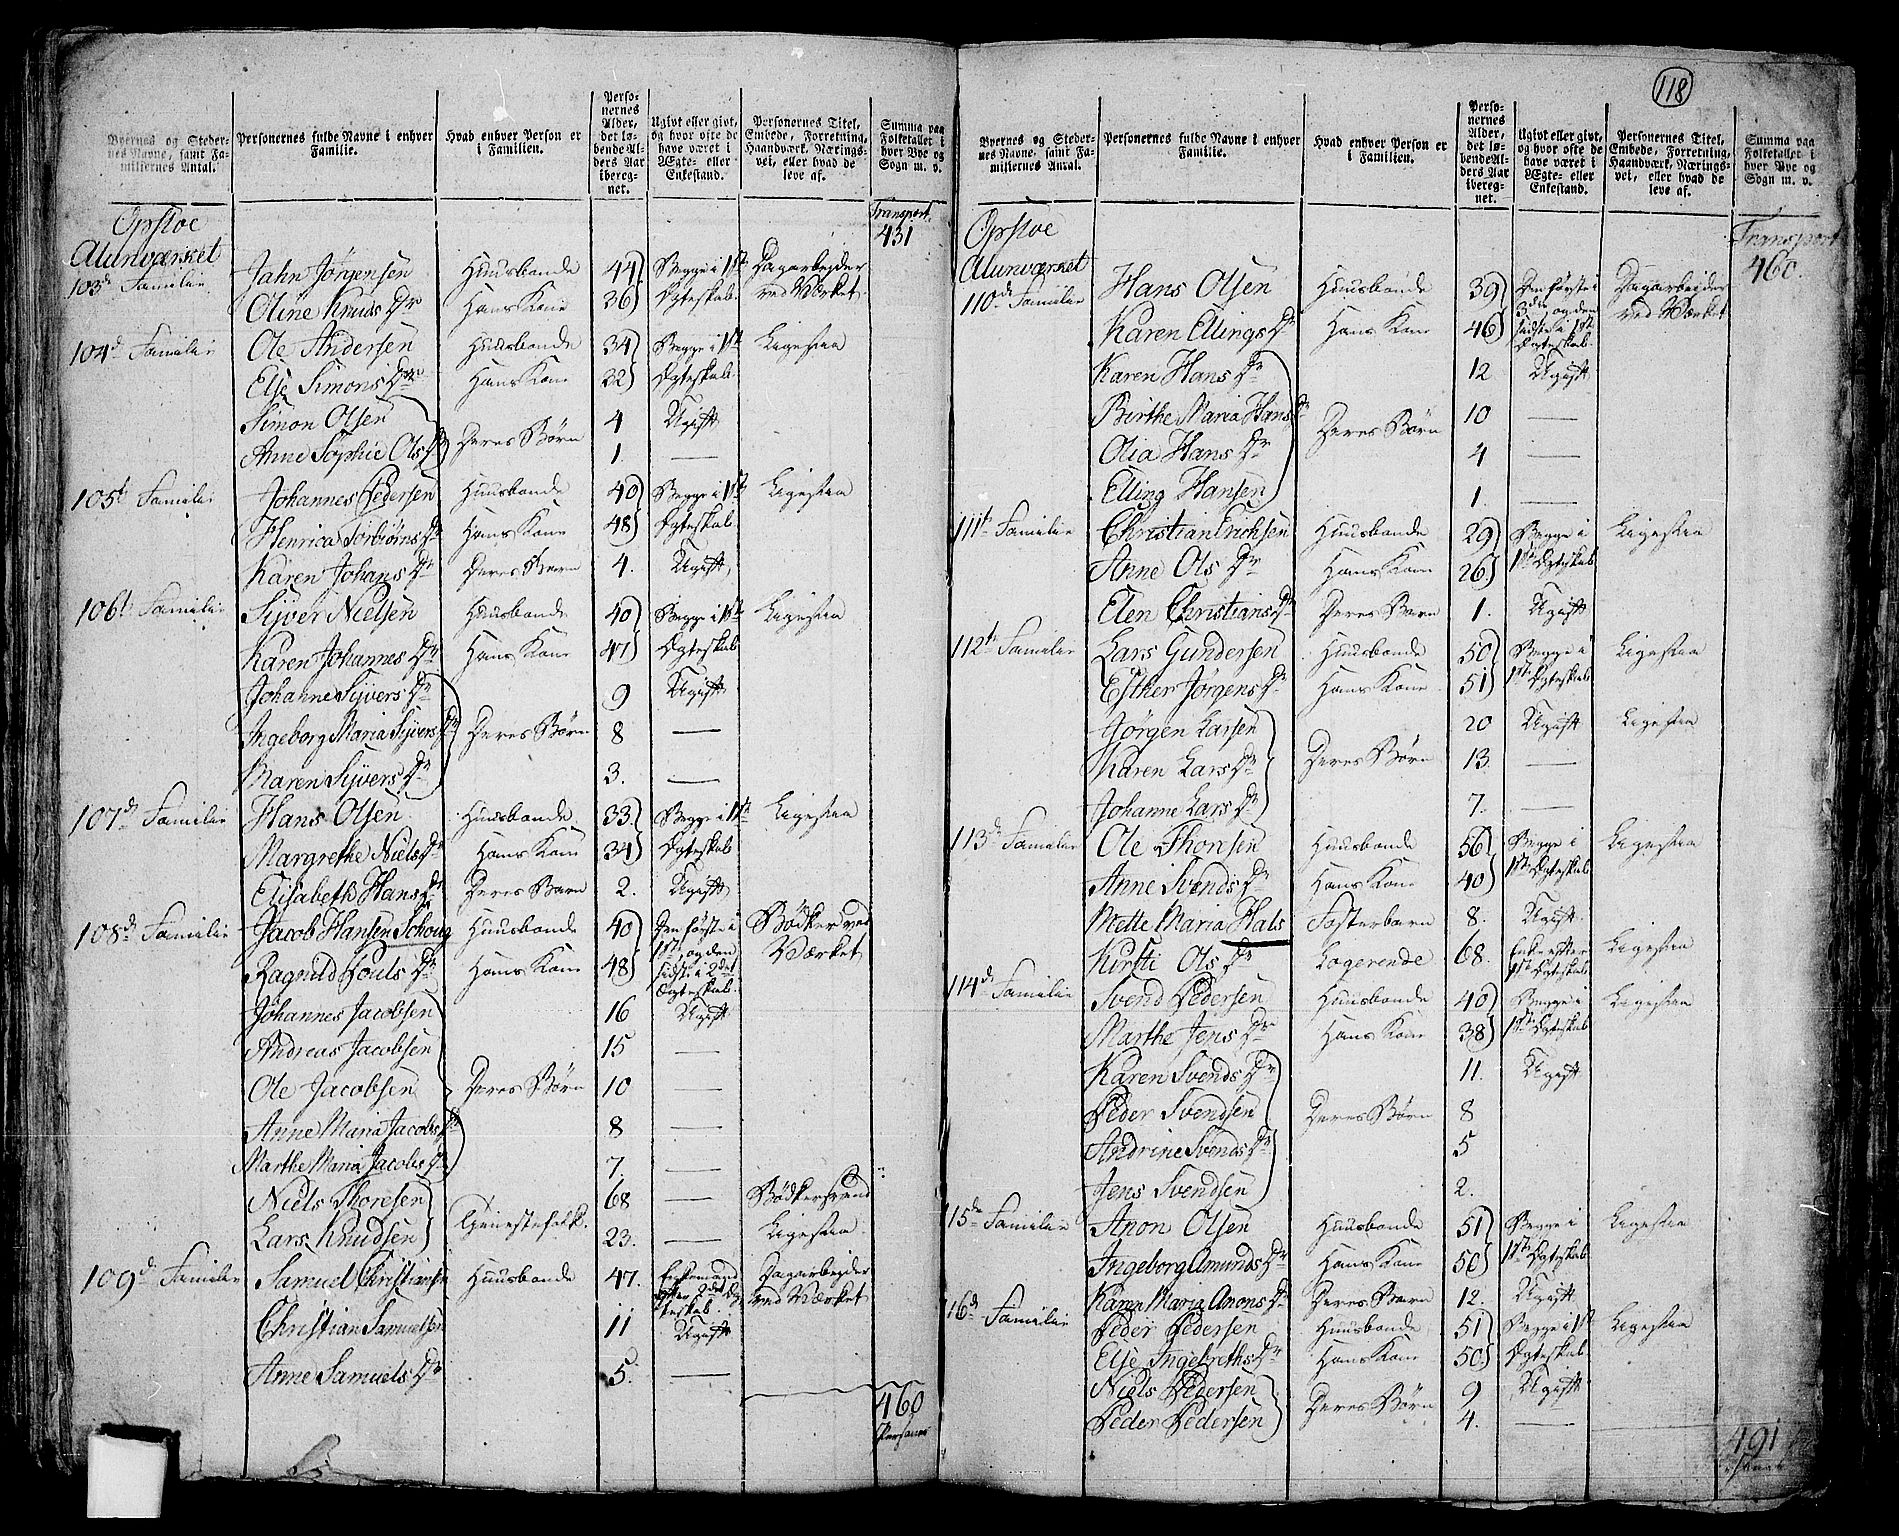 118
Byernes og Stedernes Navne, samt Familiernes Antal.
Personernes fulde Navne i enhver Familie.
Hvad enhver Person er i Familien.
Personernes Alder, det løbende Alders Aar iberegnet.
Ugivt eller givt, og hvor ofte de have været i Ægte- eller Enkestand.
Personernes Titel, Embede, Forretning, Haandværk, Næringsvei, eller hvad de leve af.
Summa paa Folketallet i hver Bye og Sogn m. v.
Opsloe Alunværket
Transport 431
103d Familie Jahn Jørgensen Huusbonde 44 Begge i 1ste Dagarbeider
Oline Knuds Dr Hans Kone 36 Ægteskab ved Værket
104d Familie Ole Andersen Huusbonde 34 Begge i 1ste Ligesaa
Else Simons Dr Hans Kone 32 Ægteskab
Simon Olsen 4 Ugift
Deres Børn
Anne Sophie Ols Dr 1 —
105t Familie Johannes Pedersen Huusbonde 40 Begge i 1ste Ligesaa
Henrica Torbiørns Dr Hans Kone 48 Ægteskab
Karen Johans Dr Deres Barn 4. Ugift
106t Familie Syver Nielsen Huusbonde 40 Begge i 1ste Ligesaa
Karen Johannes Dr Hans Kone 47 Ægteskab
Johanne Syvers Dr 9 Ugift
Ingeborg Maria Syvers Dr Deres Børn 8 —
Maren Syvers Dr 3. —
107de Familie Hans Olsen Huusbonde 33. Begge i 1ste Ligesaa
Margrethe Niels Dr Hans Kone 34 Ægteskab
Elisabeth Hans Dr Deres Barn 2. Ugift
108de Familie Jacob Hansen Schoug Huusbonde 40 Den første i 1ste, og den Bødker ved
Ragnild Pouls Dr Hans Kone 48 sidste i 2det Ægteskab Værket
Johannes Jacobsen 16 Ugift
Andreas Jacobsen 15 —
Ole Jacobsen Deres Børn 10 —
Anne Maria Jacobs Dr 8 —
Marthe Maria Jacobs Dr 7. —
Niels Thoresen 68 — Bødkersvend
Tjenestefolk.
Lars Knudsen 23. — Ligesaa
109d Familie Samuel Christiansen Huusbonde 47. Enkemand efter 2det Ægteskab. Dagarbeider ved Værket
Christian Samuelsen 11 Ugift
Anne Samuels Dr 5. —
460 Personer
Byernes og Stedernes Navne, samt Familiernes Antal.
Personernes fulde Navne i enhver Familie.
Hvad enhver Person er i Familien.
Personernes Alder, det løbende Alders Aar iberegnet.
Ugivt eller givt, og hvor ofte de have været i Ægte- eller Enkestand.
Personernes Titel, Embede, Forretning, Haandværk, Næringsvei, eller hvad de leve af.
Summa paa Folketallet i hver Bye og Sogn m. v.
Opsloe Alunværket
Transport 460.
110de Familie Hans Olsen Huusbonde 39 Den første i 3die, og den Dagarbeider
Karen Ellings Dr Hans Kone 46 sidste i 1ste Ægteskab ved Værket
Karen Hans Dr 12 Ugift
Birthe Maria Hans Dr 10 —
Deres Børn
Olia Hans Dr 4 —
Elling Hansen 1. —
111te Familie Christian Erichsen Huusbonde 29 Begge i Ligesaa
Anne Ols Dr Hans Kone 26. 1ste Ægteskab
Elen Christians Dr Deres Barn 1. Ugift
112te Familie Lars Gundersen Huusbonde 50 Begge i Ligesaa
Esther Jørgens Dr Hans Kone 51 1ste Ægteskab
Jørgen Larsen 20 Ugift Ligesaa
Karen Lars Dr Deres Børn 13. —
Johanne Lars Dr 7. —
113de Familie Ole Thonsen Huusbonde 56 Begge i Ligesaa
Anne Svends Dr Hans Kone 40 1ste Ægteskab
Mette Maria Hals Fosterbarn 8. Ugift
Kirsti Ols Dr Logerende 68. Enke efter 1ste Ægteskab Ligesaa
114de Familie Svend Pedersen Huusbonde 40 Begge i Ligesaa
Marthe Jens Dr Hans Kone 38 1ste Ægteskab
Karen Svends Dr 11. Ugift
Peder Svendsen Deres Børn 8
Andrine Svends Dr 5
Jens Svendsen 2.
115de Familie Anon Olsen Huusbonde 51 Begge i Ligesaa
Ingeborg Amunds Dr Hans Kone 50 1ste Ægteskab
Karen Maria Anons Dr Deres Barn 12. Ugift
116de Familie Peder Pedersen Huusbonde 51 Begge i 1ste Ligesaa
Else Ingebreths Dr Hans Kone 50 Ægteskab
Niels Pedersen 9 Ugift
Deres Børn
Peder Pedersen 4. —
491